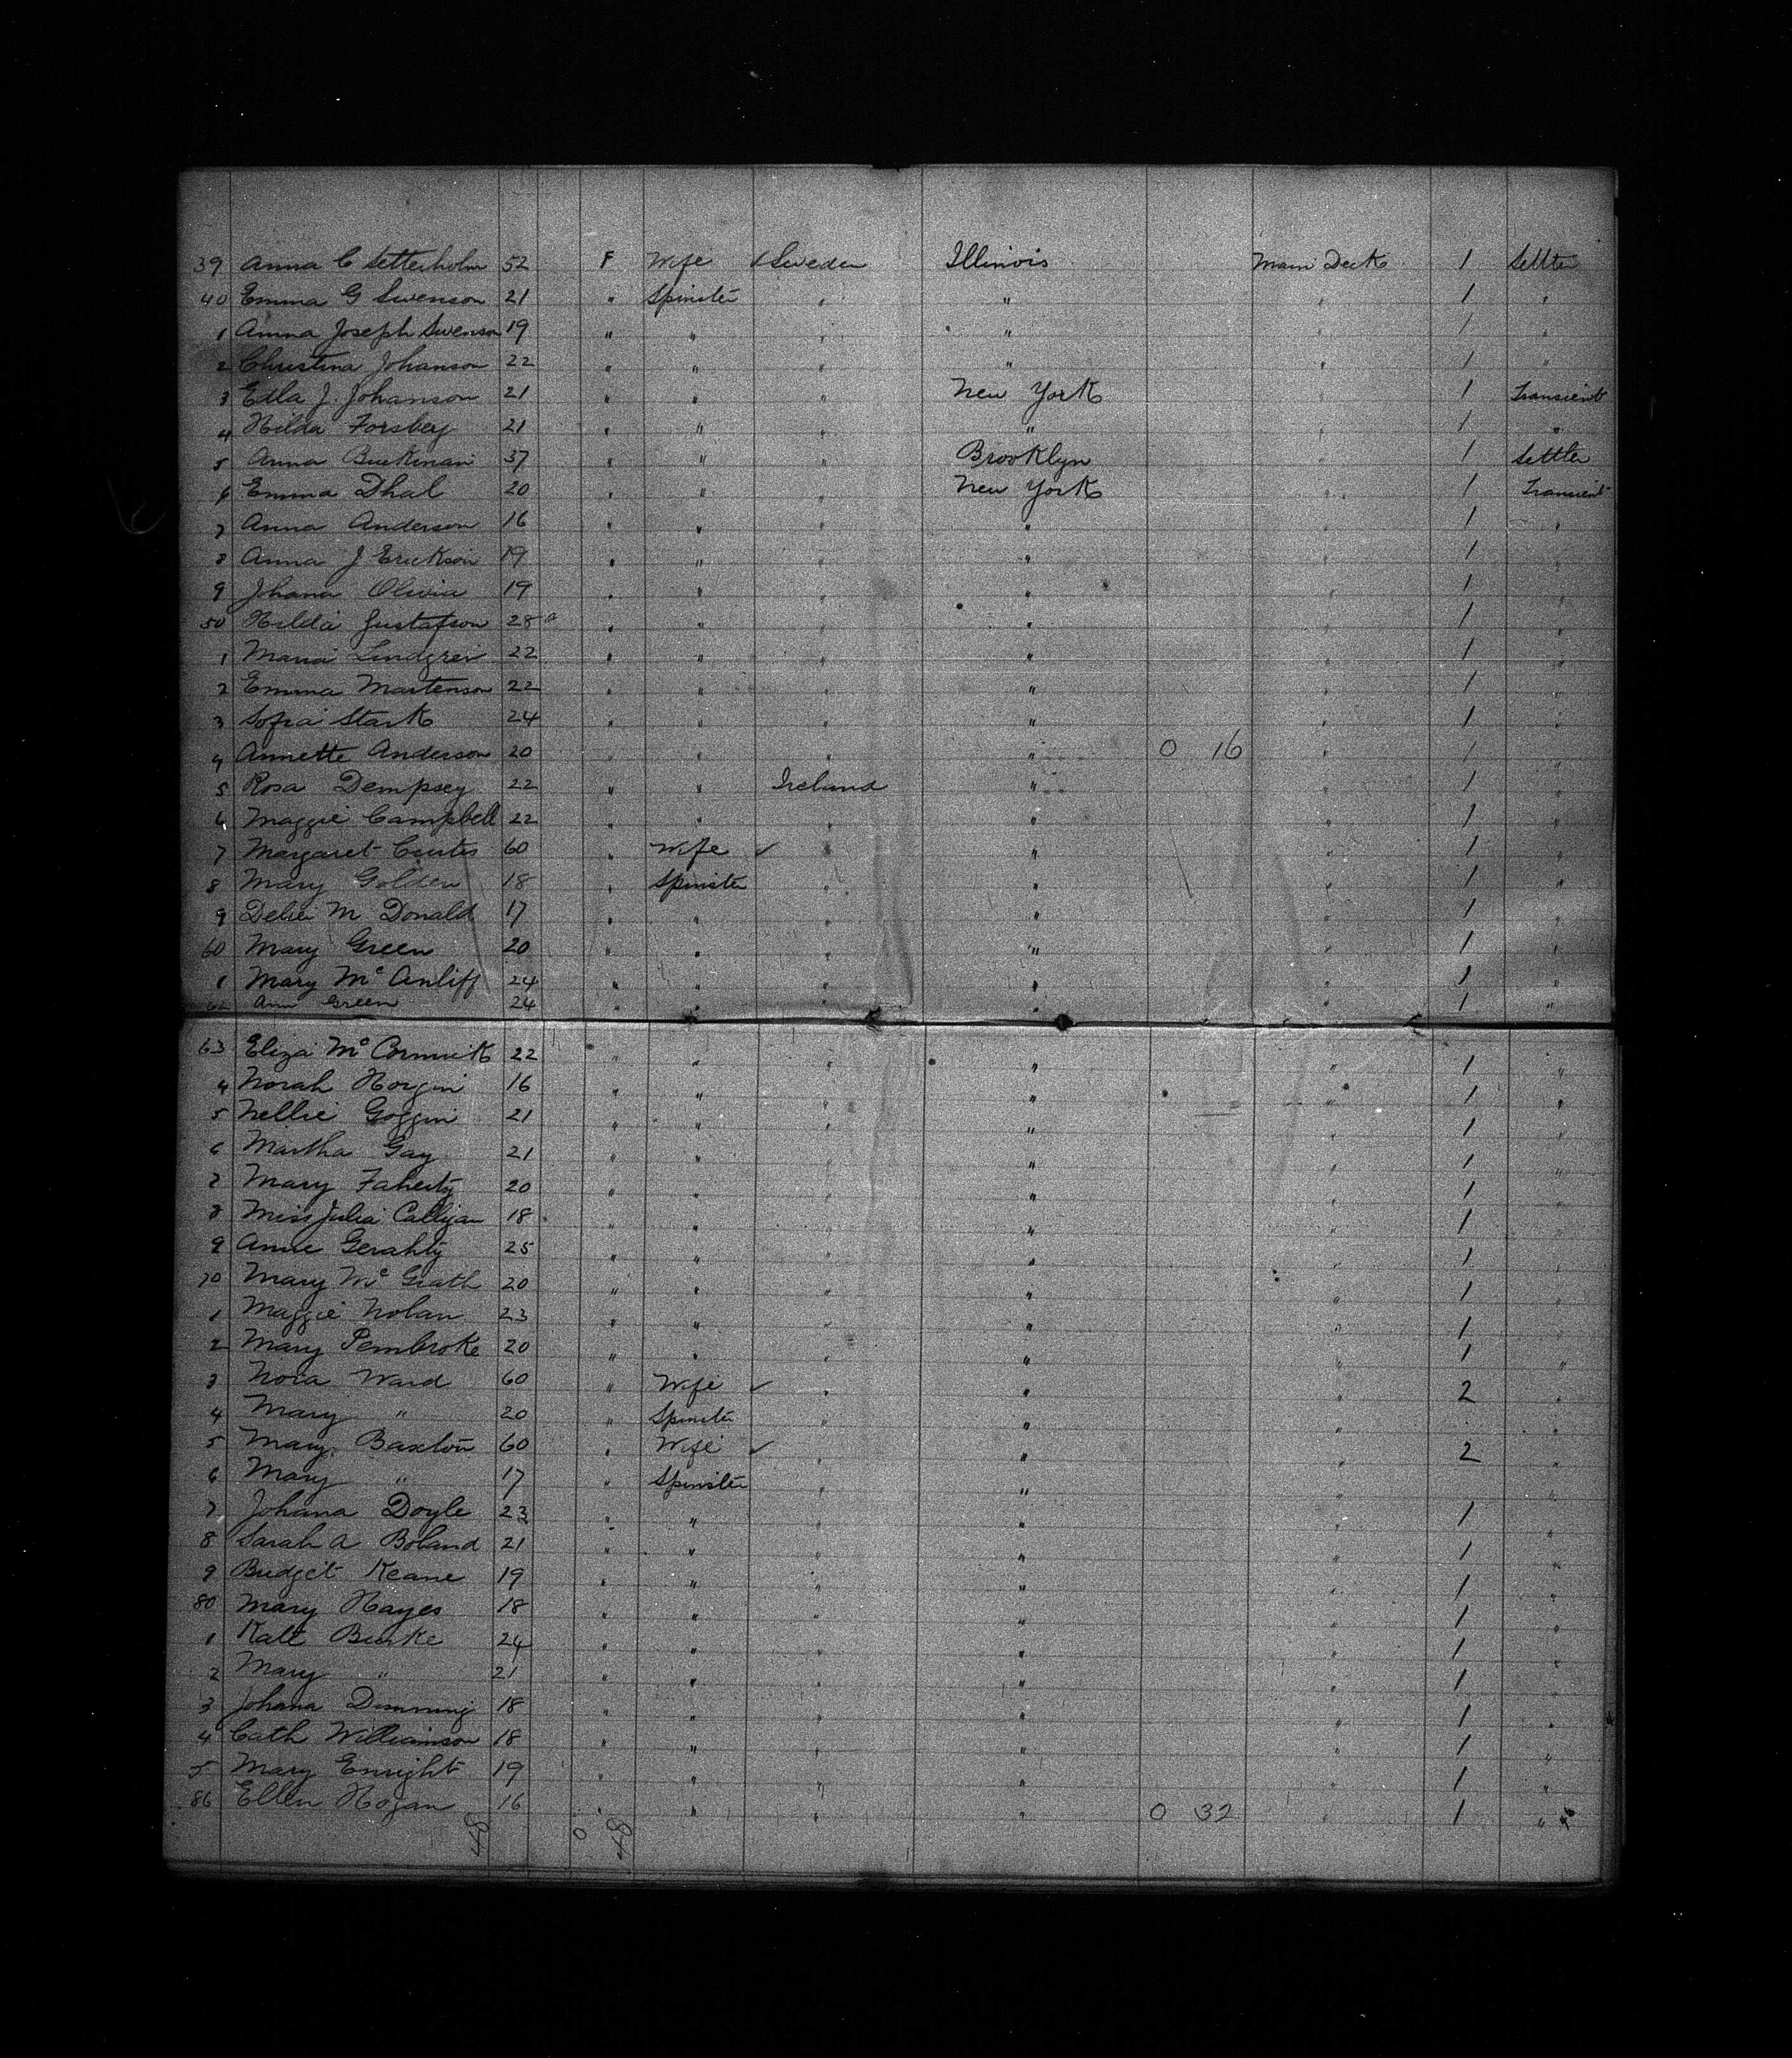 39 Anna C Setterholm 52 F Wife Sweden Illinois Main Deck 1 Settler
40 Emma G Swenson 21 " Spinster " " " 1 "
1 Anna Joseph Swenson 19 " " " " " 1 "
2 Christina Johanson 22 " " " " " 1 "
3 Edla J. Johanson 21 " " " New York " 1 Transient
4 Hilda Forsberg 21 " " " " " 1 "
5 Anna 37 " " " Brooklyn " 1 Settler
6 Emma Dhal 20 " " " New York " 1 Transient
7 Anna Anderson 16 " " " " " 1 "
8 Anna J Erickson 19 " " " " " 1 "
9 Johana Olivia 19 " " " " " 1 "
50 Hilda Gustafson 28 " " " " " 1 "
1 Maria Lindgren 22 " " " " " 1 "
2 Emma Martenson 22 " " " " " 1 "
3 Sofia Stark 24 " " " " " 1 "
4 Annette Anderson 20 " " " " 0 16 " 1 "
5 Rosa Dempsey 22 " " Ireland " " 1 "
6 Maggie Campbell 22 " " " " " 1 "
7 Margaret Curtis 60 " Wife ✓ " " " 1 "
8 Mary Golden 18 " Spinster " " " 1 "
9 Delia Mc Donald 17 " " " " " 1 "
60 Mary Green 20 " " " " " 1 "
1 Mary Mc Anliff 24 " " " " " 1 "
62 Ann Green 24 " " " " " 1 "
63 Eliza Mc Cormick 22 " " " " " 1 "
4 Norah Horgin 16 " " " " " 1 "
5 Nellie Goggin 21 " " " " " 1 "
6 Martha Gay 21 " " " " " 1 "
7 Mary Faherty 20 " " " " " 1 "
8 Miss Julia Calligan 18 " " " " " 1 "
9 Anne Gerahty 25 " " " " " 1 "
70 Mary Mc Grath 20 " " " " " 1 "
1 Maggie Nolan 23 " " " " " 1 "
2 Mary Pembroke 20 " " " " " 1 "
3 Nora Ward 60 " Wife ✓ " " " 2 "
4 Mary " 20 " Spinster " " " "
5 Mary Baxton 60 " Wife ✓ " " " 2 "
6 Mary " 17 " Spinster " " " "
7 Johana Doyle 23 " " " " " 1 "
8 Sarah A Boland 21 " " " " " 1 "
9 Bridget Keane 19 " " " " " 1 "
80 Mary Hayes 18 " " " " " 1 "
1 Kate Burke 24 " " " " " 1 "
2 Mary " 21 " " " " " 1 "
3 Johana 18 " " " " " 1 "
4 Cath Williamson 18 " " " " " 1 "
5 Mary Enright 19 " " " " " 1 "
86 Ellen Hogan 16 " " " " 0 32 " 1 " 46
48 0 48